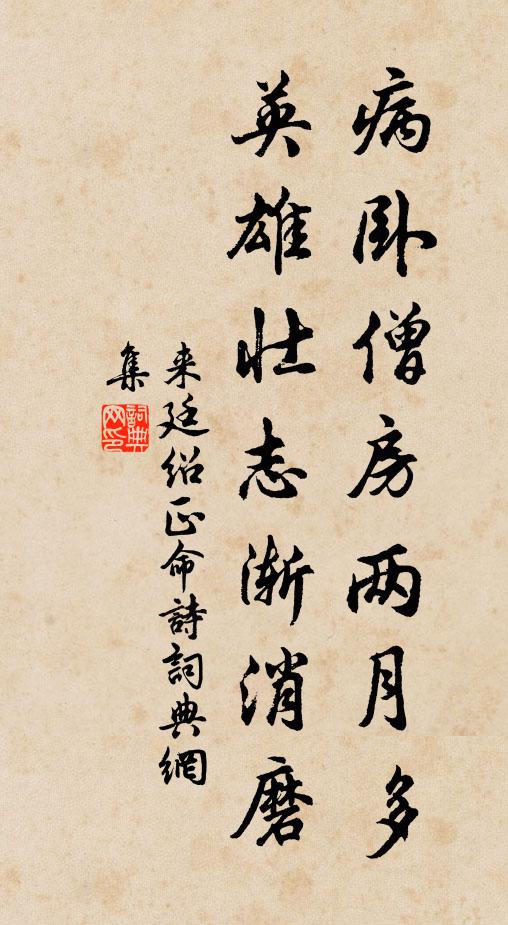 病卧僧房两月多
英雄壮志渐消磨
来廷绍正命詩詞典網
集
詞典网印